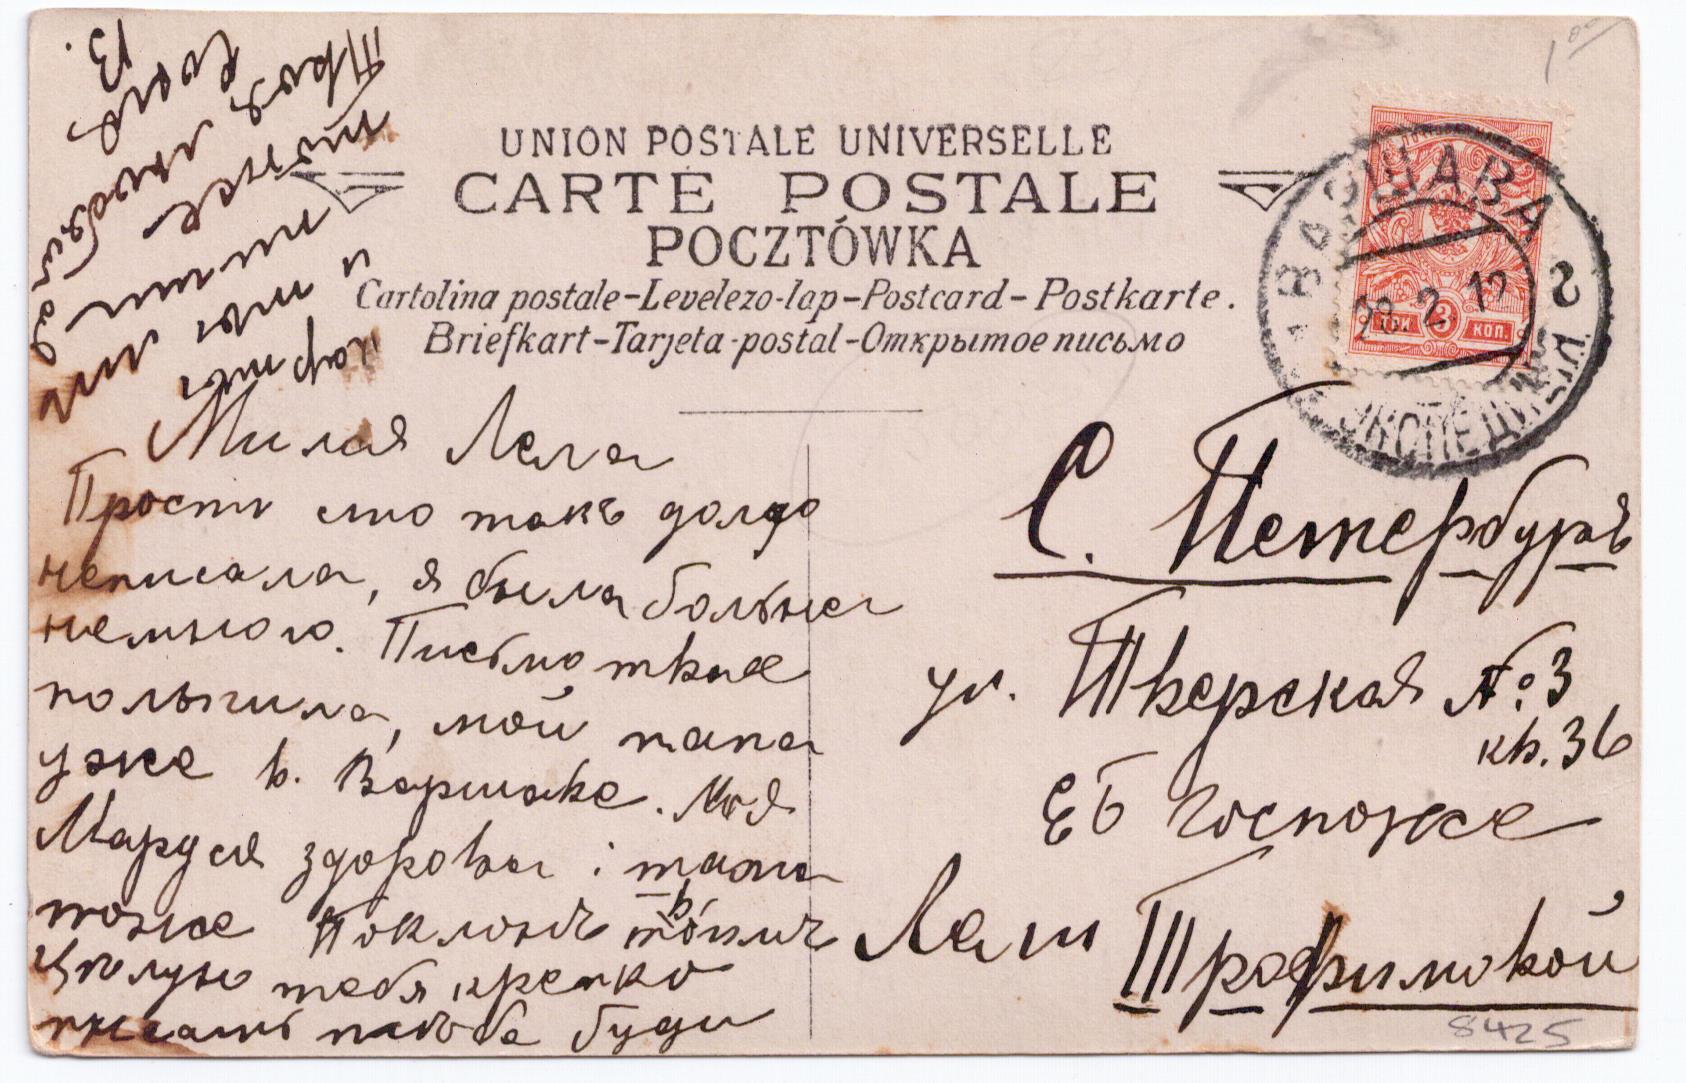 UNION POSTALE UNIVERSELLE
CARTE POSTALE
POCZTÓWKA
Cartolina postale-Levelezo-lap-Postcard-Postkarte.
Briefkart-Tarjeta-postal-Открытое письмо
ВАРШАВА
28.2.12
2
ЭКСПЕДИЦ
ТРИ 3 КОП.
Милая Леля
Прости што такъ долго
неписала, я была больна
немного. Письмо твае
полычила, мой папа
уже в. Варшаве. Моя
Маруся здорова и мама
тоже Поклонъ твоимъ
Цполую тебя крепко
буди
и ты
пиши
тоже
Твоя любящая
В.
С. Петербургъ
ул. Тверская № 3
кв. 36
ЕБ Госпоже
Лели Трофимовой
8425